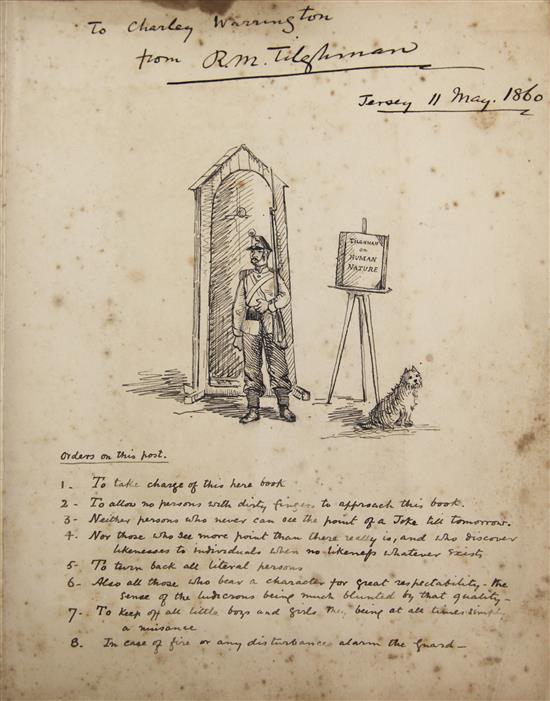 To Charley Warrington
from R.M. Tilghman
Jersey 11 May. 1860
TILGHMAN
on
HUMAN
NATURE
Orders on this post.
1 - To take charge of this here book
2 - To allow no persons with dirty fingers to approach this book.
3 - Neither persons who never can see the point of a Joke till tomorrow.
4 - Nor those who see more point than there really is, and who discover
likenesses to individuals when no likeness whatever exists
5 - To turn back all literal persons
6 - Also all those who bear a character for great respectability - the
sense of the ludicrous being much blunted by that quality -
7 - To keep off all little boys and girls they being at all times simply
a nuisance
8. In case of fire or any disturbance alarm the Guard -